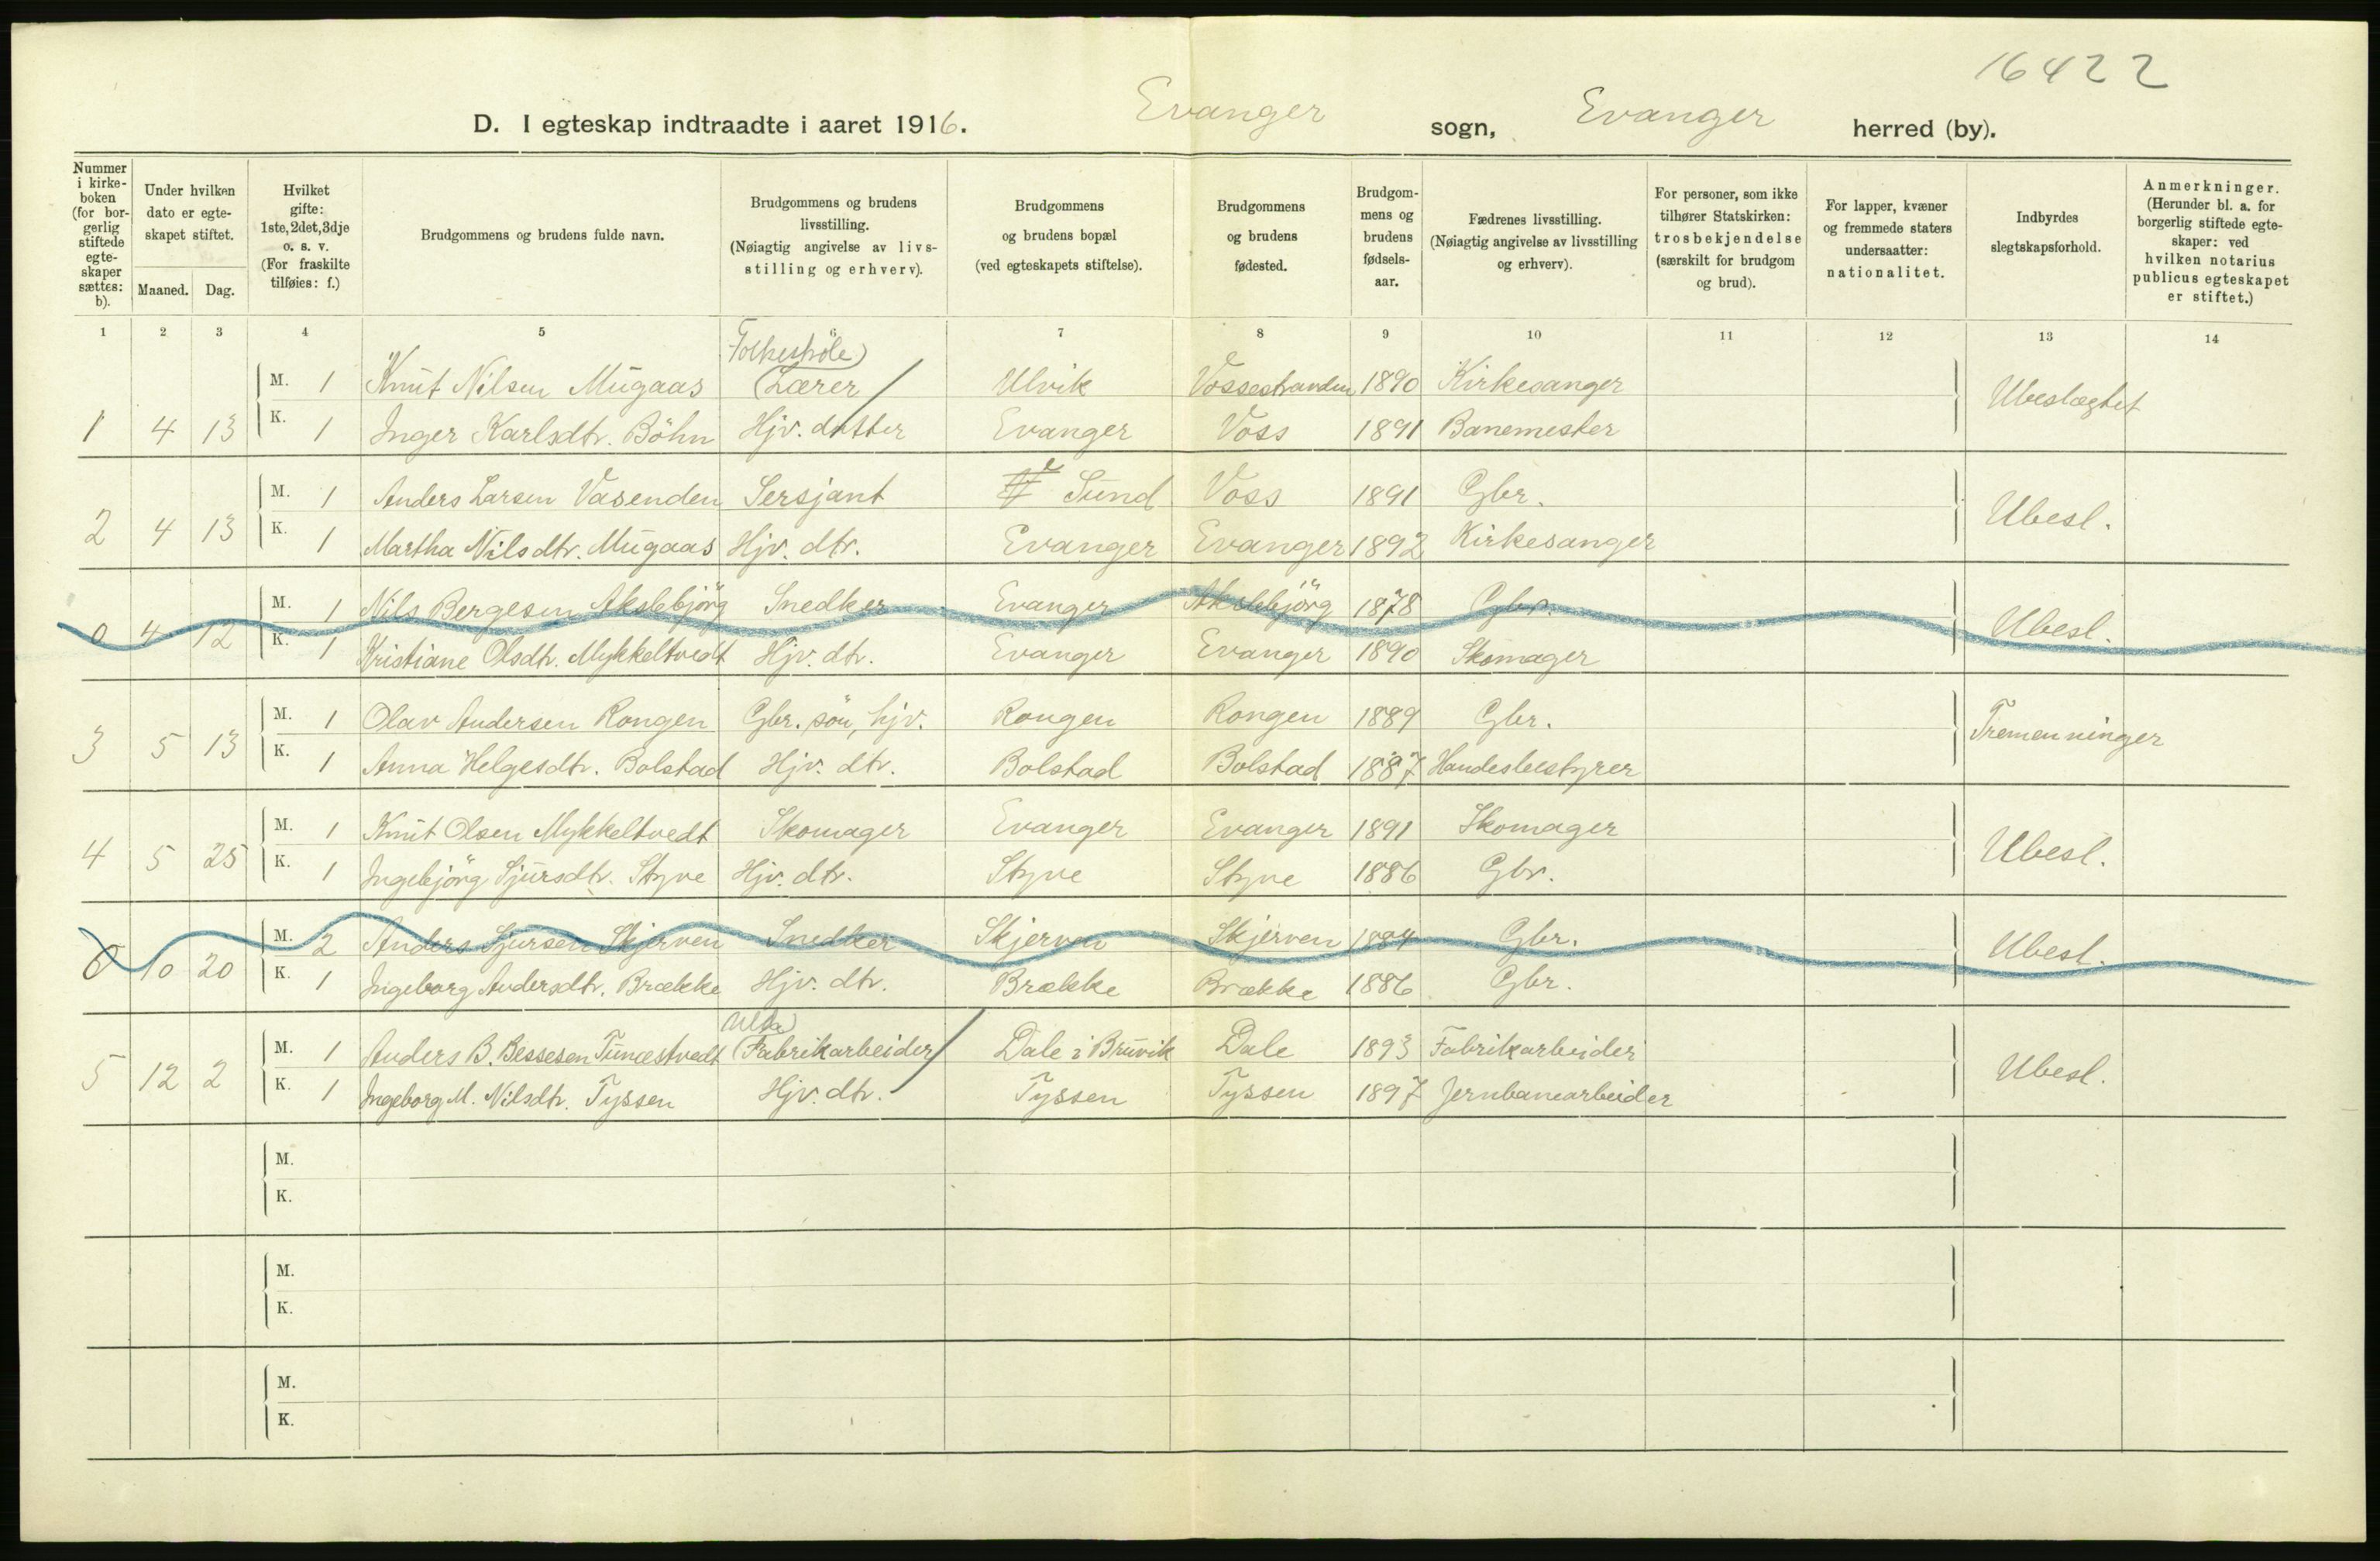 16422
D. I egteskap indtraadte i aaret 1916. Evanger sogn, Evanger herred (by).
Nummer i kirke-boken (for bor-gerlig stiftede egte-skaper sættes: b).
Under hvilken dato er egte-skapet stiftet.
Maaned. Dag.
Hvilket gifte: 1ste, 2det, 3dje o. s. v. (For fraskilte tilføies: f.)
Brudgommens og brudens fulde navn.
Brudgommens og brudens livsstilling. (Nøiagtig angivelse av livs-stilling og erhverv).
Brudgommens og brudens bopæl (ved egteskapets stiftelse).
Brudgommens og brudens fødested.
Brudgom-mens og brudens fødsels-aar.
Fædrenes livsstilling. (Nøiagtig angivelse av livsstilling og erhverv).
For personer, som ikke tilhører Statskirken: trosbekjendelse (særskilt for brudgom og brud).
For lapper, kvæner og fremmede staters undersaatter: nationalitet.
Indbyrdes slegtskapsforhold.
Anmerkninger. (Herunder bl. a. for borgerlig stiftede egte-skaper: ved hvilken notarius publicus egteskapet er stiftet.)
1 2 3 4 5 6 7 8 9 10 11 12 13 14
Folkeskole
M. 1 Knut Nilsen Mügaas Lærer Ulvik Vossestranden 1890 Kirkesanger Ubeslægtet
1 4 13 K. 1 Inger Karlsdtr. Böhn Hjv. datter Evanger Voss 1891 Banemester
M. 1 Anders Larsen Vasenden Sersjant Sund Voss 1891 Gbr. Ubesl.
2 4 13 K. 1 Martha Nilsdtr. Mügaas Hjv. dtr. Evanger Evanger 1892 Kirkesanger
M. 1 Nils Bergesen Akslebjörg Snedker Evanger Akslebjörg 1878 Gbr. Ubesl.
0 4 12 K. 1 Kristiane Olsdtr. Mykkeltvedt Hjv. dtr. Evanger Evanger 1890 Skomager
M. 1 Olav Andersen Rongen Gbr. sön, hjv. Rongen Rongen 1889 Gbr. Tremenninger
3 5 13 K. 1 Anna Helgesdtr. Bolstad Hjv. dtr. Bolstad Bolstad 1887 Handesbestyrer
M. 1 Knut Olsen Mykkeltvedt Skomager Evanger Evanger 1891 Skomager Ubesl.
4 5 25 K. 1 Ingebjörg Sjursdtr. Styve Hjv. dtr. Styve Styve 1886 Gbr.
M. 2 Anders Sjursen Skjerven Snedker Skjerven Skjerven 1884 Gbr. Ubesl.
10 20 K. 1 Ingeborg Andersdtr. Brække Hjv. dtr. Brække Brække 1886 Gbr.
M. 1 Anders B. Bessesen Tunestvedt Fabrikarbeider Dale i Bruvik Dale 1893 Fabrikarbeider Ubesl.
5 12 2 K. 1 Ingeborg M. Nilsdtr. Tyssen Hjv. dtr. Tyssen Tyssen 1897 Jernbanearbeider
M.
K.
M.
K.
M.
K.